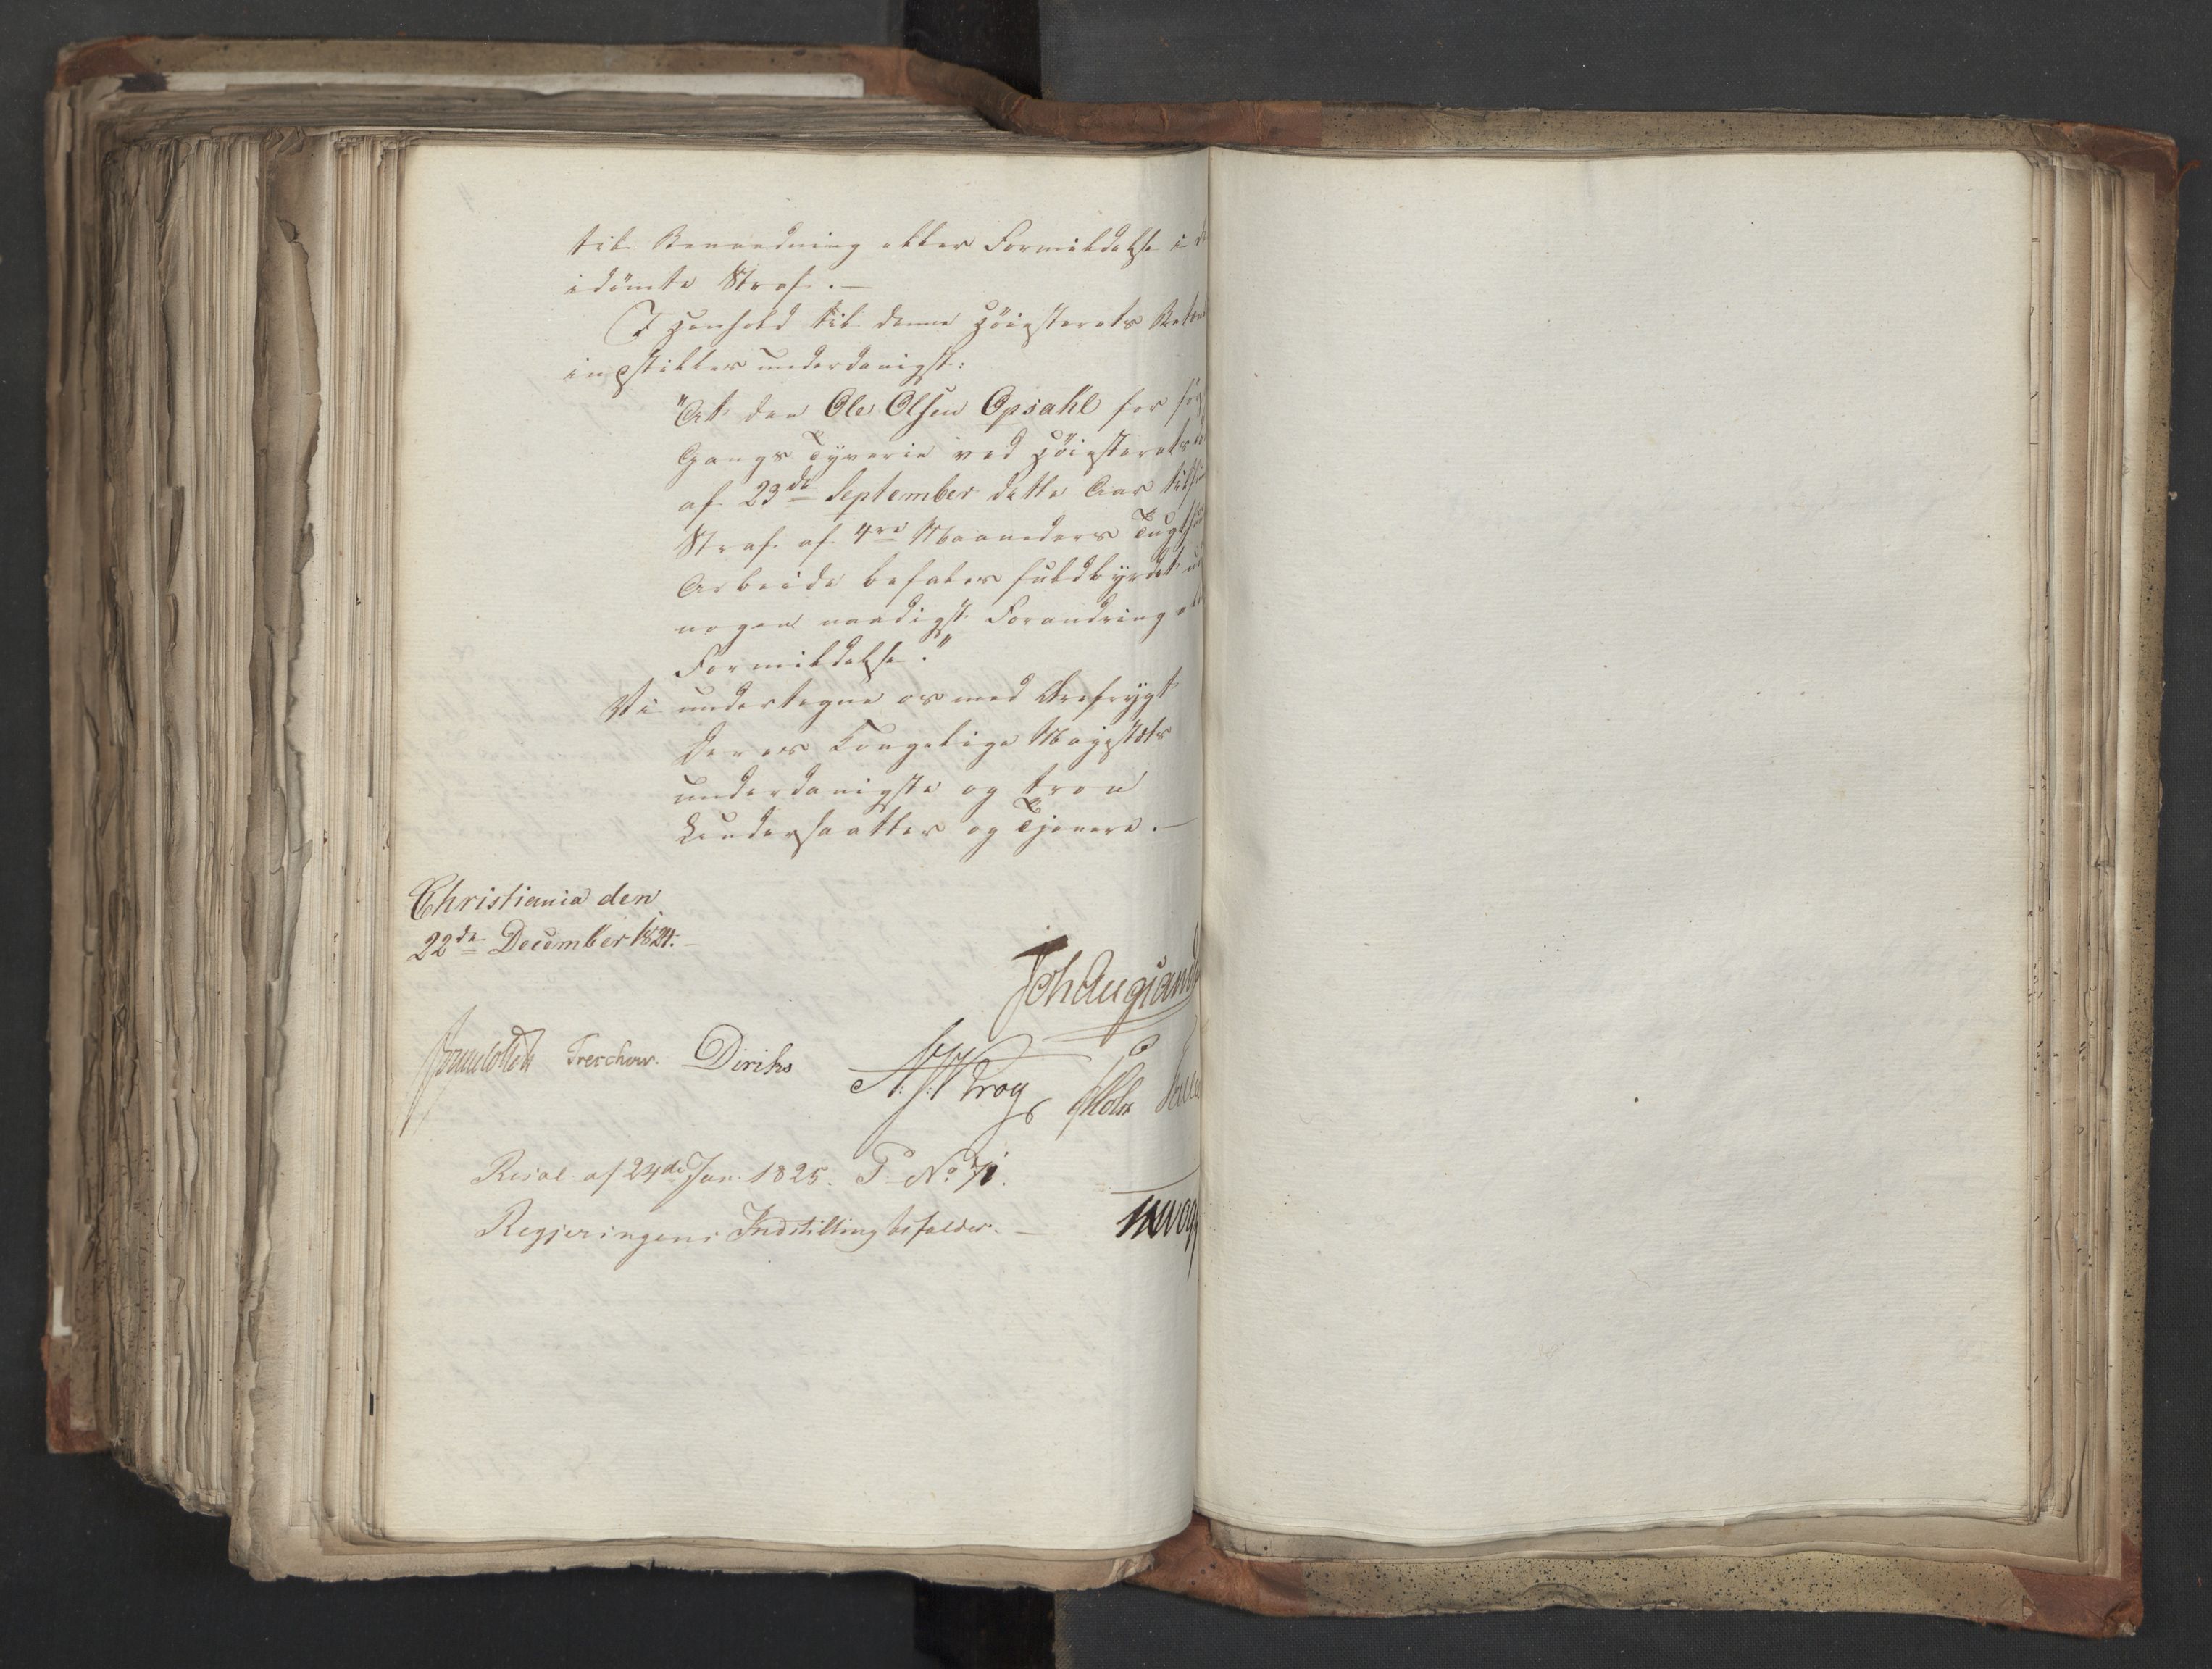 til Benaadning eller Formildelse i
idömte Straf. —
I Henhold til denne Höiesterets
indstilles underdanigst:
"At den Ole Olsen Opsahl for
Gangs Tyverie ved Höiesterets
af 23de September dette Aar
Straf af 4re Maaneders
Arbeide befales fuldbyrdet
nogen naadigst Forandring
Formildelse."
Vi undertegne os med Ærefrygt
Deres Kongelige Majestæts
underdanigste og troe
Undersaatter og Tjenere. —
Christiania den
22de December 1824. —
Joh Aug Sand
Sommerhielm Treschow. Diriks A: J: Krog Holst
Resol af 24de Jan. 1825. P No 71.
Regjeringens Indstilling bifaldes. —